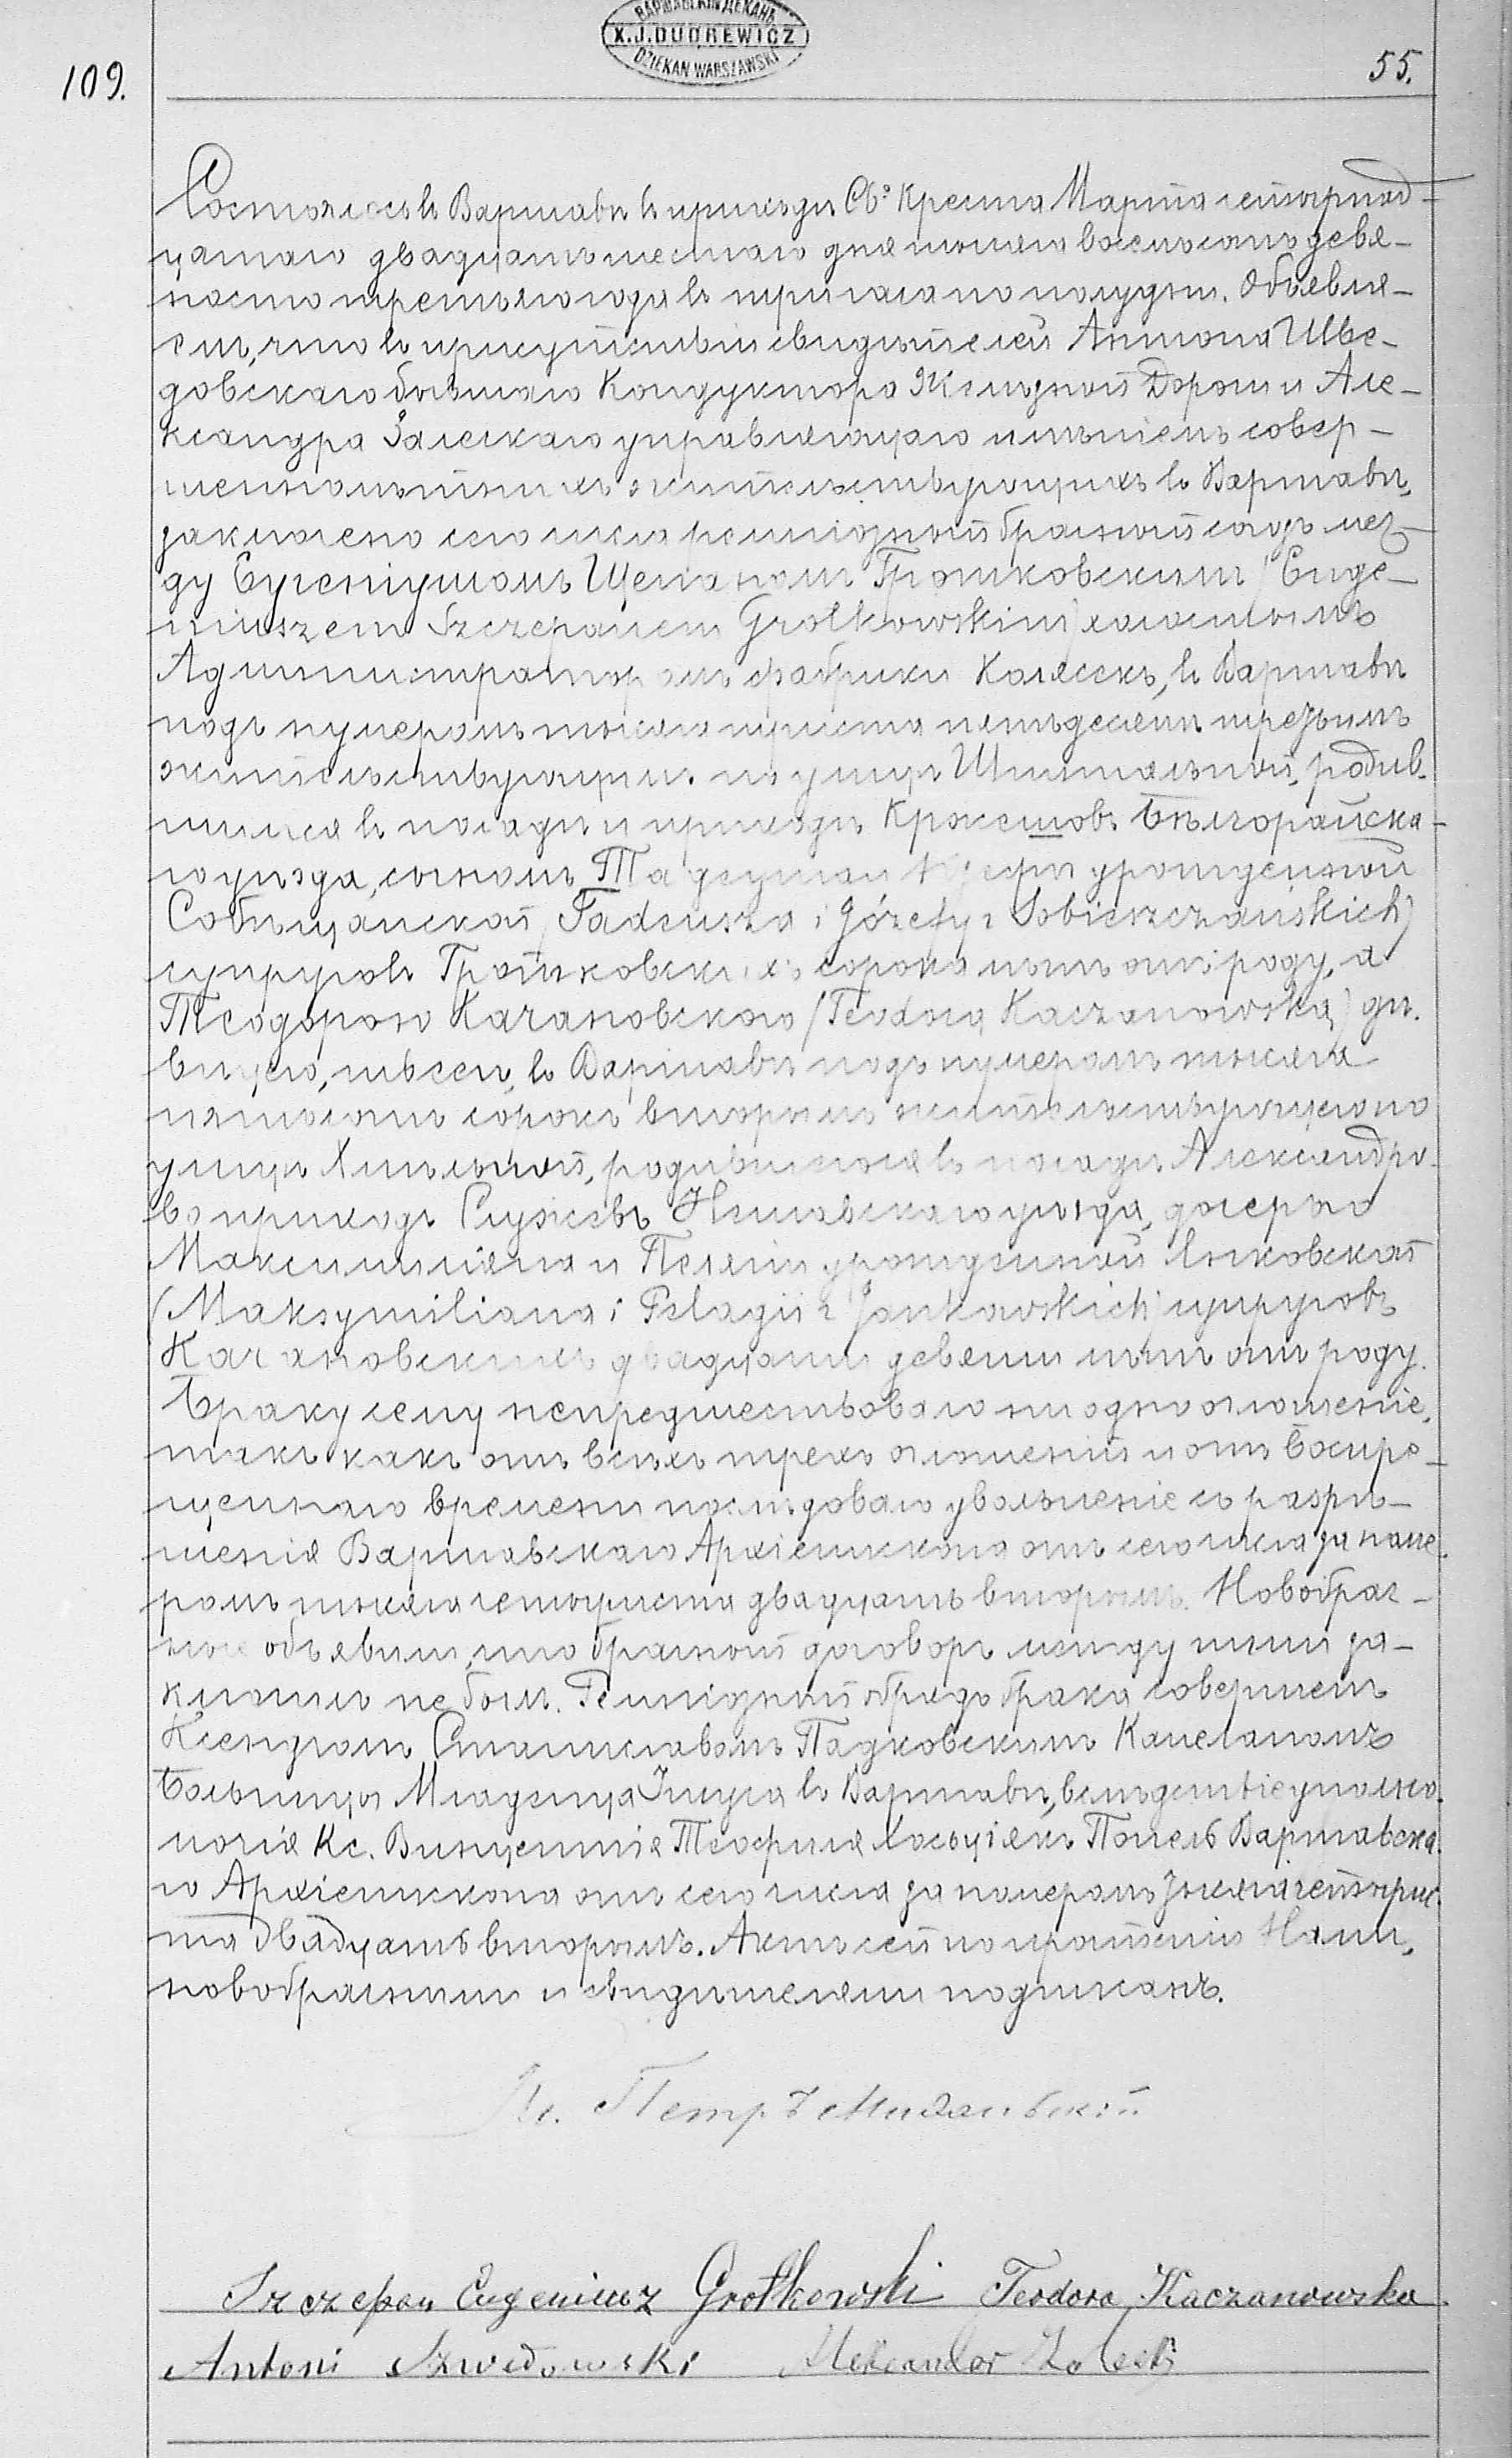 ВАРШАВСКІЙ ДЕКАНЪ
X. J. DUDREWICZ
DZIEKAN WARSZAWSKI
109.
55.
Состоялось въ Варшавѣ въ приходѣ Св. Креста Марта четырнад-
цатаго двадцать шестаго дня тысяча восемьсотъ девя-
носто третьяго года въ три часа по полудни. Объявля-
емъ, что въ присутствіи свидѣтелей Антона Шве-
довскаго бывшаго Кондуктора Желѣзной Дороги и Але-
ксандра Залескаго управляющаго имѣніемъ совер-
шеннолѣтнихъ жительствующихъ въ Варшавѣ,
заключено сего числа религіозный брачный союзъ меж-
ду Евгеніушомъ Щепаномъ Гротковскимъ (Euge-
niuszem Szczepanem Grotkowskim) холостымъ
Администраторомъ фабрики Колясекъ, въ Варшавѣ
подъ нумеромъ тысяча триста пятьдесятъ третьимъ
жительствующимъ по улицѣ Шпитальной, родив-
шимся въ посадѣ и приходѣ Кржешовъ Бѣлгорайска-
го уѣзда, сыномъ Тадеуша и Юзефы урожденной
Собѣщанской (Tadeusza i Józefy z Sobieszczańskich)
супруговъ Гротковскихъ сорока лѣтъ отъ роду, а
Теодорою Качановскою (Teodorą Kaczanowską) дѣ-
вицею, швеею, въ Варшавѣ подъ нумеромъ тысяча
пятьсотъ сорокъ вторымъ жительствующею по
улицѣ Хмѣльной, родившеюся въ посадѣ Александро-
во приходѣ Служевъ Нешавскаго уѣзда, дочерью
Максимиліана и Пелягіи урожденной Янковской
(Maksymiliana i Pelagii z Jankowskich) супруговъ
Качановскихъ двадцати девяти лѣтъ отъ роду.
Браку сему непредшествовало ни одно оглашеніе,
такъ какъ отъ всѣхъ трехъ оглашеній и отъ Воспре-
щеннаго времени послѣдовало увольненіе съ разрѣ-
шенія Варшавскаго Архіепископа отъ сего числа за номе-
ромъ тысяча четыреста двадцать вторымъ. Новобрач-
ные объявили, что брачный договоръ между ними за-
ключенъ не былъ. Религіозный обрядъ брака совершенъ
Ксендзомъ Станиславомъ Падковскимъ Капеланомъ
Больницы Младенца Іисуса въ Варшавѣ, вслѣдствіе уполно-
мочія Кс. Винцентія Теофиля Хосьцякъ Попель Варшавска-
го Архіепископа отъ сего числа за номеромъ тысяча четырис-
та двадцать вторымъ. Актъ сей по прочтеніи Нами,
новобрачными и свидѣтелями подписанъ.
Кс. Петръ
Szczepan Eugeniusz Grotkowski Teodora Kaczanowska
Antoni Szwedowski Aleksander Zaleski